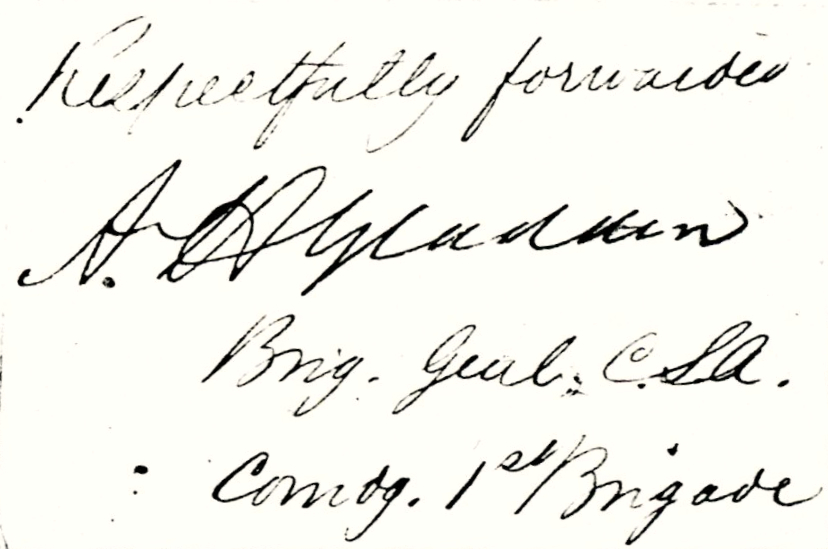 Respectfully forwarded
A. H. Gladden
Brig. Genl. C.S.A.
Comdg. 1st Brigade